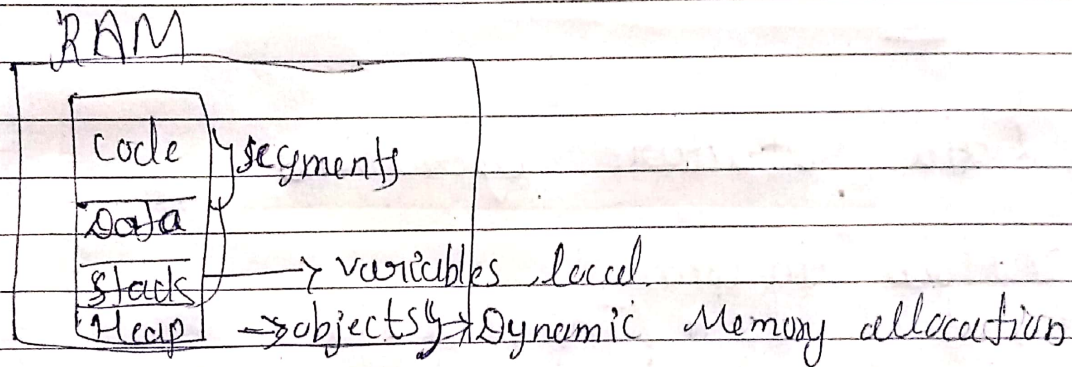 RAM
code } segments
Data
Stack → variables, local.
Heap → objects } → Dynamic Memory allocation